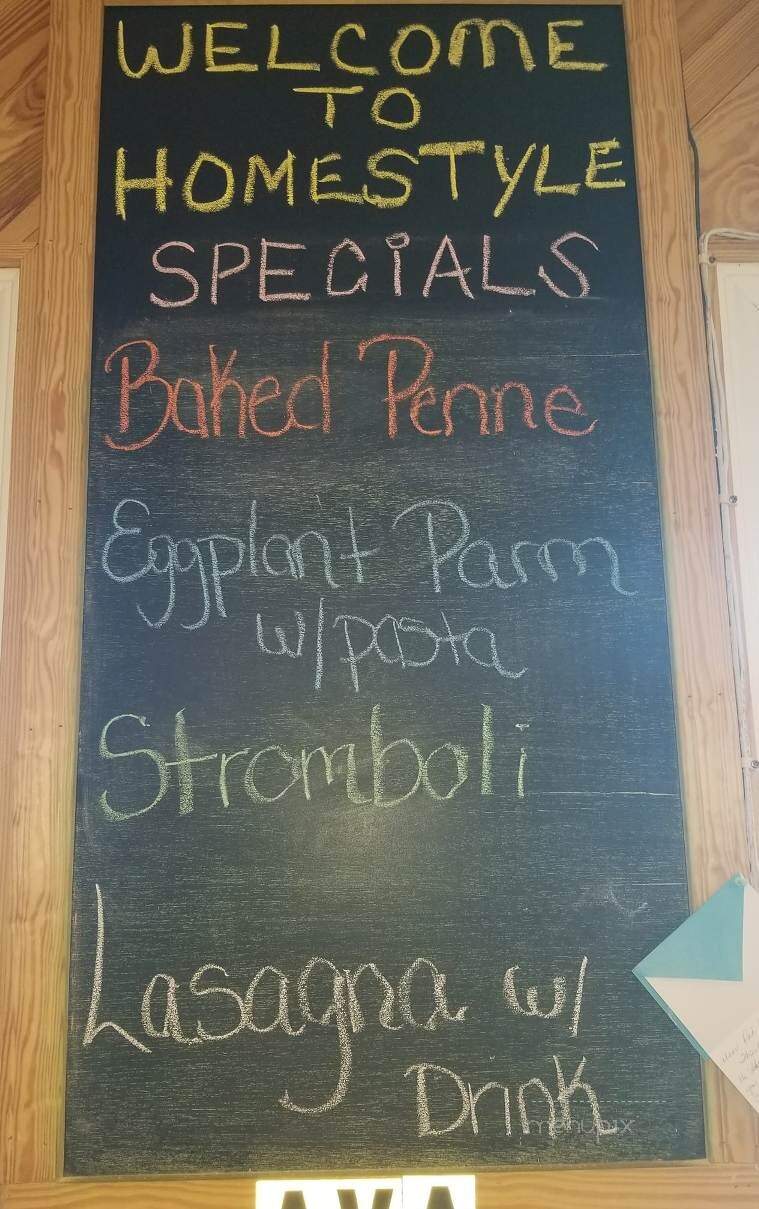 WELCOME
TO
HOMESTYLE
SPECIALS
Baked Penne
Eggplant Parm
w/pasta
Stromboli
Lasagna w/
Drink
menupix
AVA